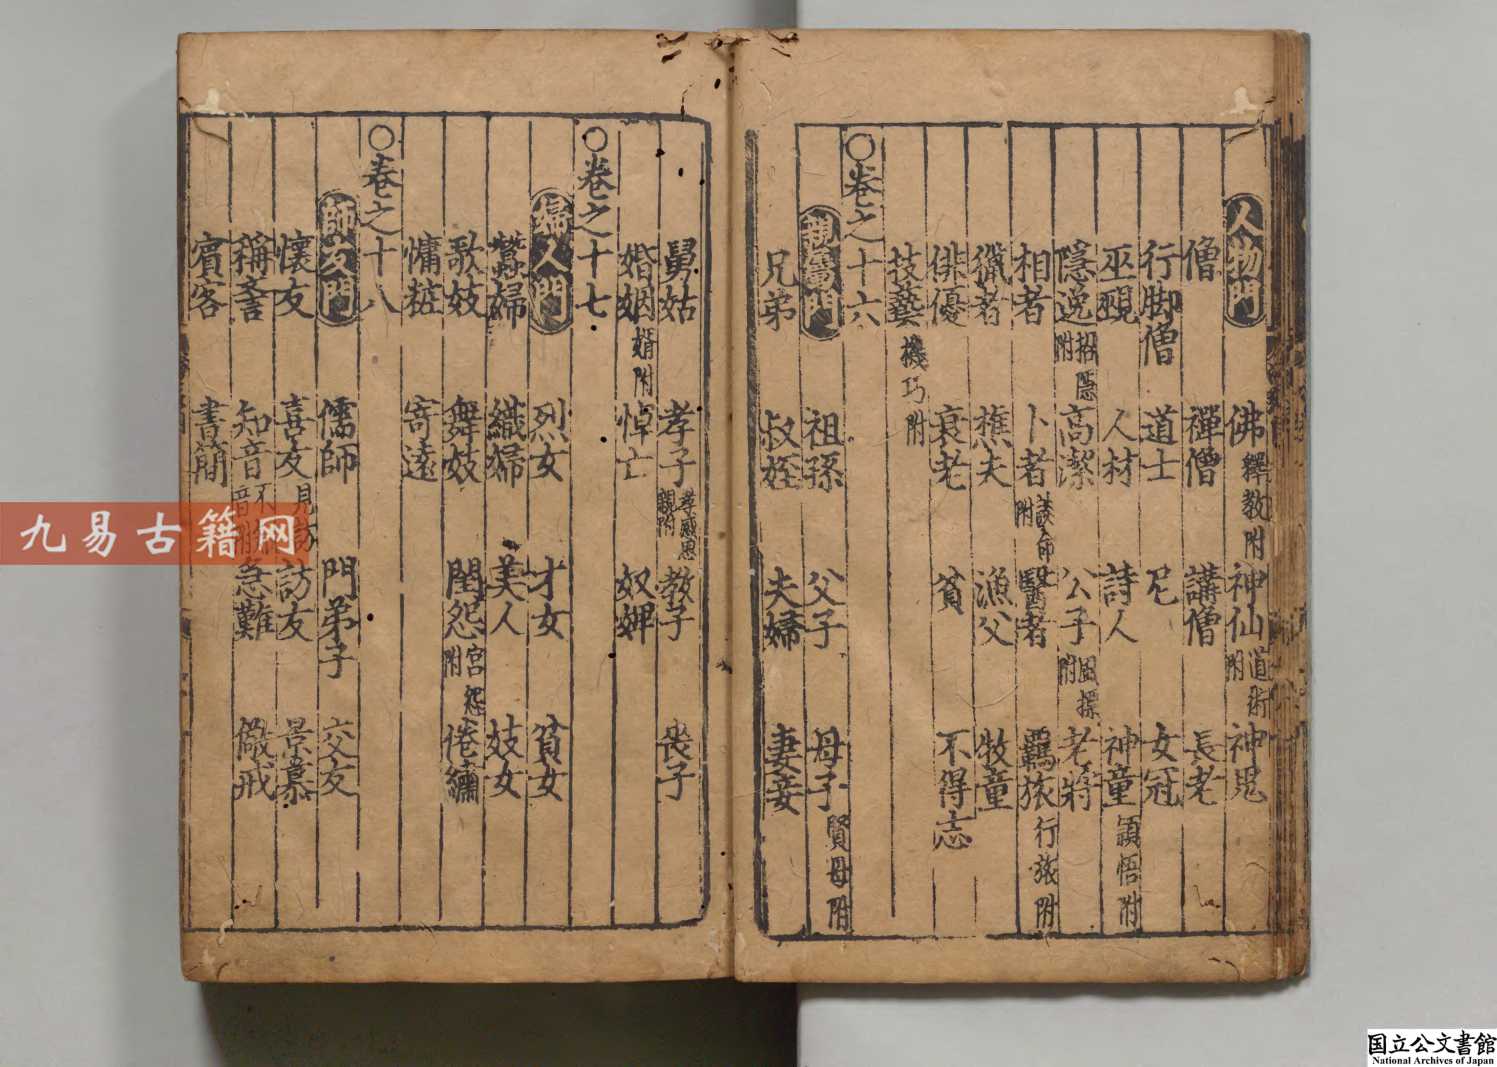 人物門 佛 釋教附 神仙 道術附 神鬼
僧 禪僧 講僧 長老
行脚僧 道士 尼 女冠
巫覡 人材 詩人 神童 頴悟附
隱逸 招隱附 高潔 公子 老將
相者 卜者 談命附 醫者 羈旅 行旅附
獵者 樵夫 漁父 牧童
俳優 衰老 貧 不得志
技藝 機巧附
○卷之十六
親屬門 祖孫 父子 母子 賢母附
兄弟 叔姪 夫婦 妻妾
舅姑 孝子 孝感思親附 教子 喪子
婚姻 婿附 悼亡 奴婢
○卷之十七
婦人門 烈女 才女 貧女
蠶婦 織婦 美人 妓女
歌妓 舞妓 閨怨 宮怨附 倦繡
慵粧 寄遠
○卷之十八
師友門 儒師 門弟子 交友
懷友 喜友 見訪 訪友 景慕
稱譽 知音 不知音附 急難 儆戒
賓客 書簡
九易古籍网
国立公文書館
National Archives of Japan